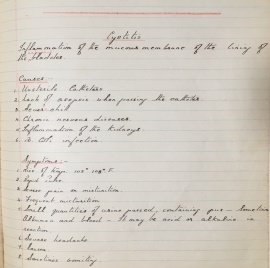 Cystitis
Inflammation of the mucous membrane of the lining of
the bladder.
Causes
1. Unsterile Catheter
2. Lack of asepsis when passing the catheter.
3. Severe chill
4. Chronic nervous diseases.
5. Inflammation of the kidneys
6. infection
Symptoms:-
1. Rise of temp. 102° 103° F.
2. Rapid pulse.
3. Severe pain on micturition.
4. Frequent micturition
5. Small quantities of urine passed, containing pus - Sometimes
Albumin and blood - It may be acid or alkaline in
reaction.
6. Severe headache
7. Nausea.
8. Sometimes vomiting.